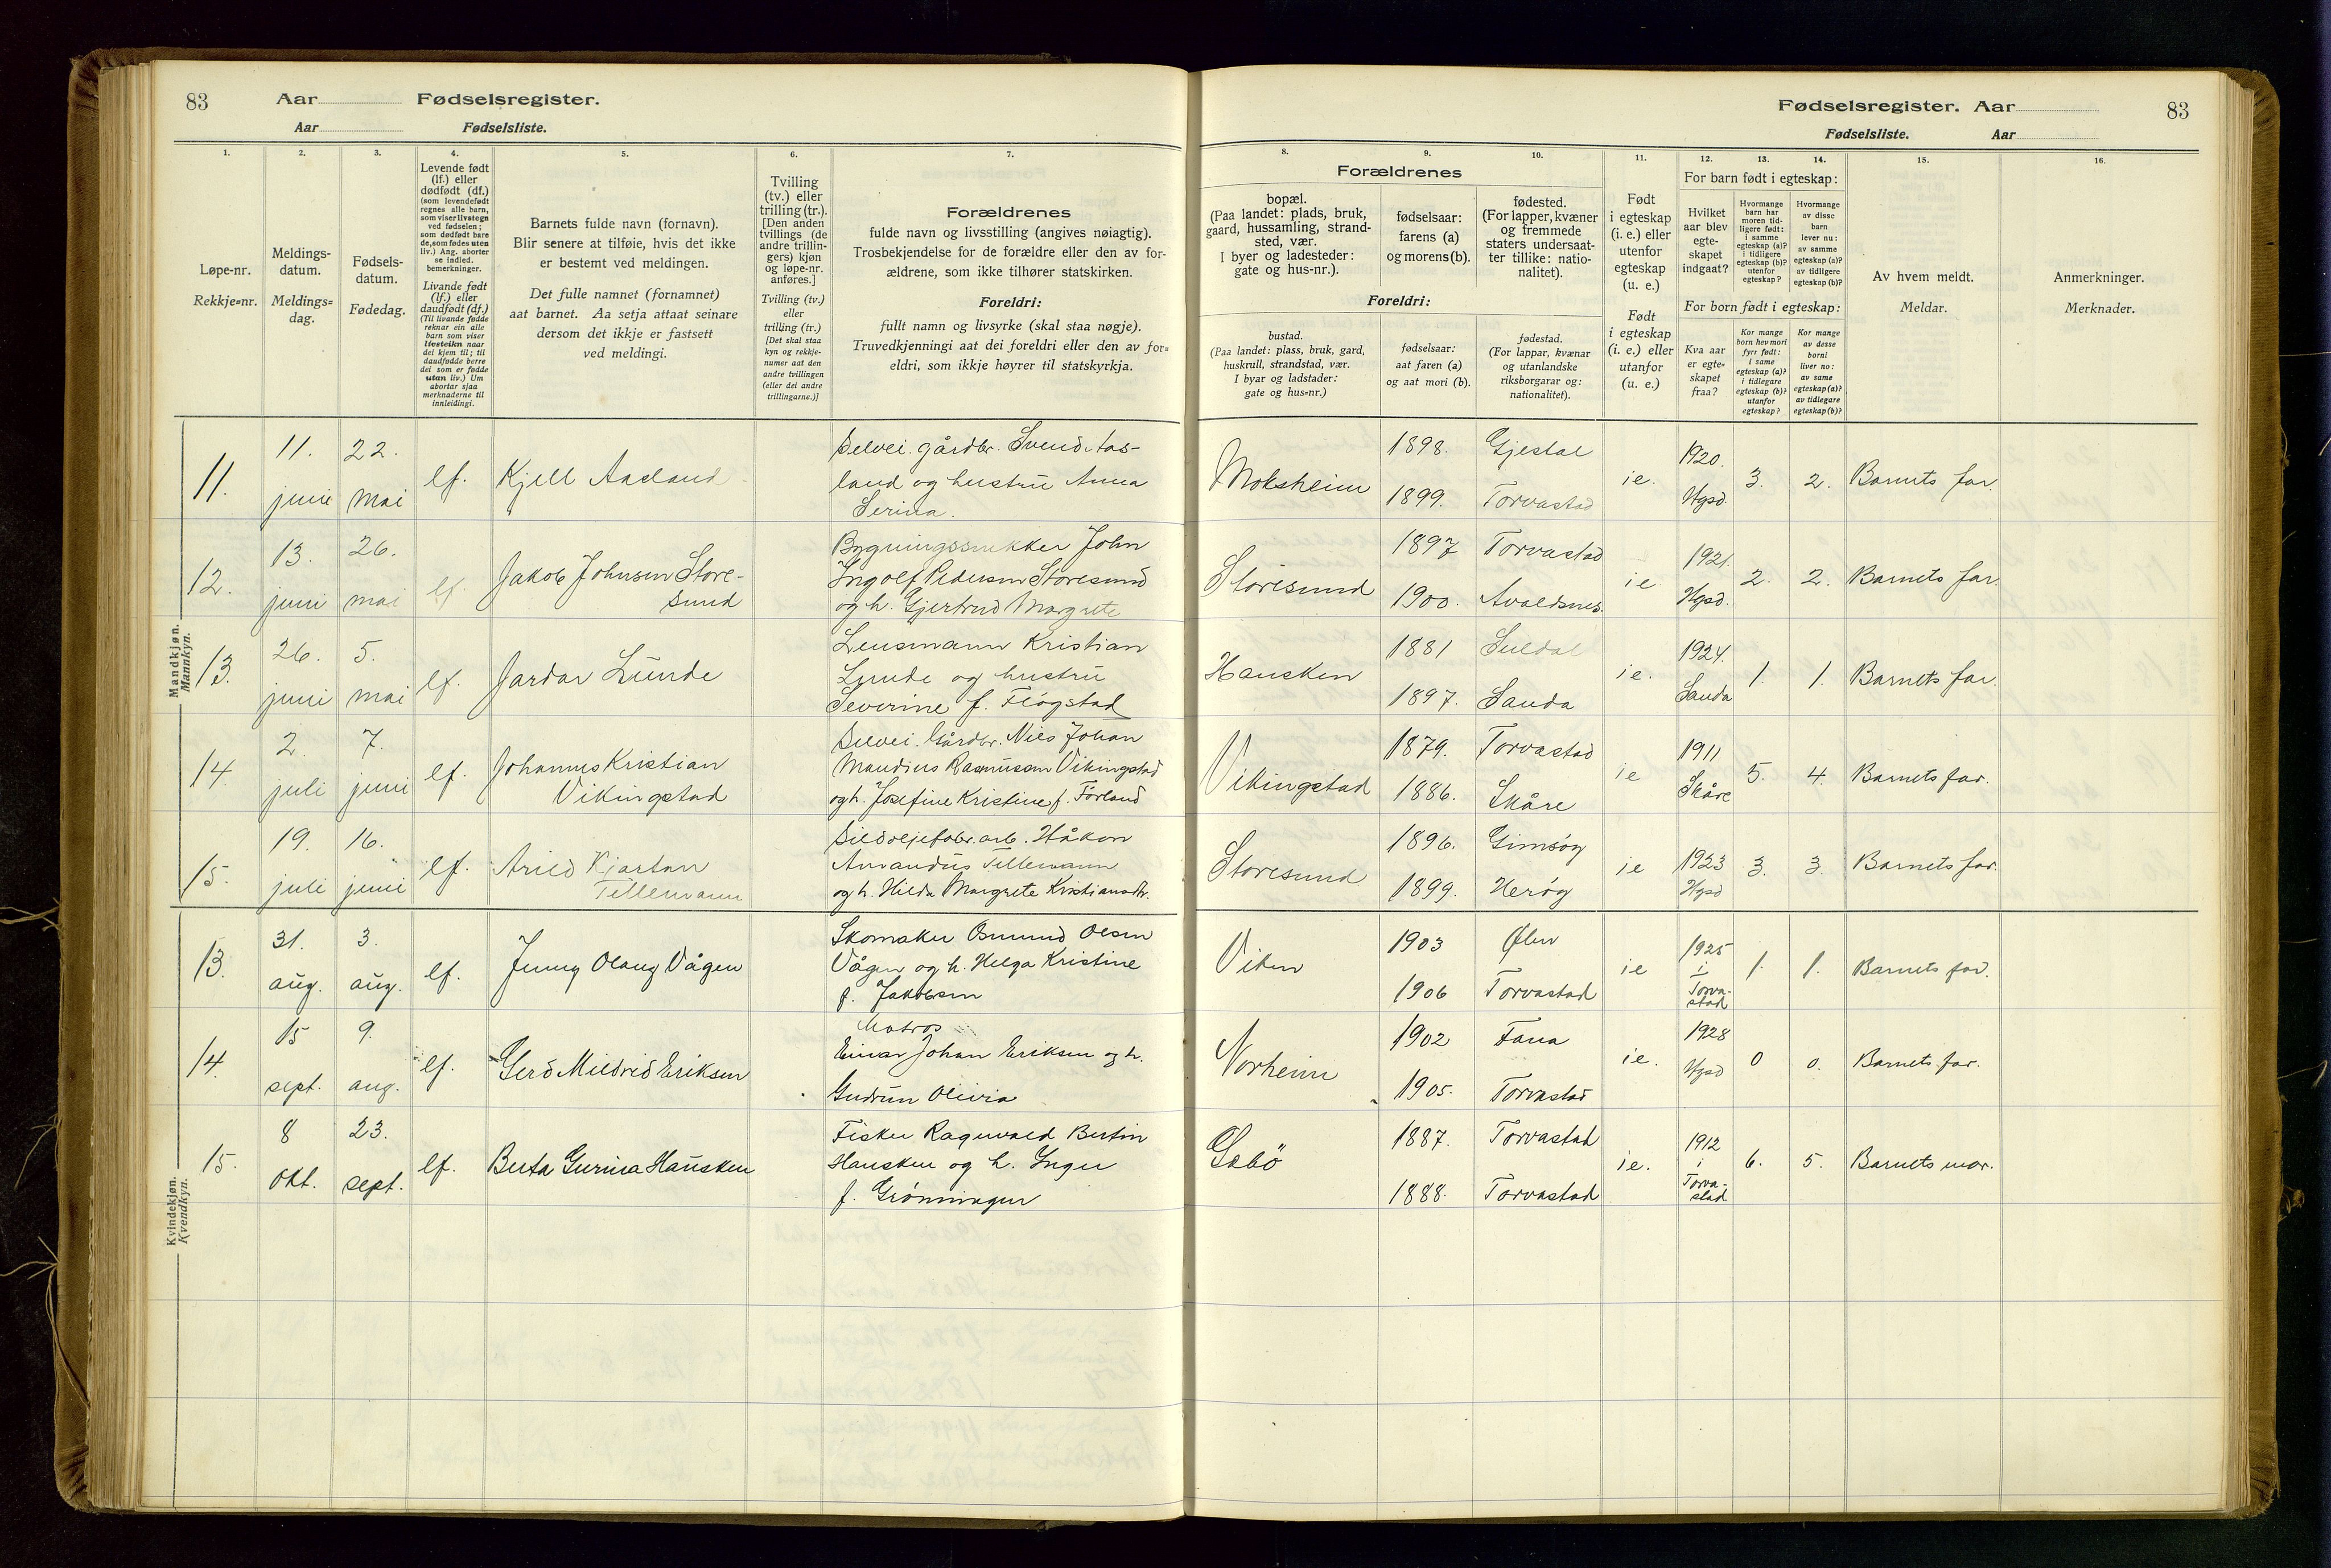 83 Aar Fødselsregister.
Aar Fødselsliste.
Fødselsregister. Aar 83
Fødselsliste. Aar
1. 2. 3. 4. 5. 6. 7.
Løpe-nr.
Rekkje-nr.
Meldings-
datum.
Meldings-
dag.
Fødsels-
datum.
Fødedag.
Levende født
(lf.) eller
dødfødt (df.)
(som levendefødt
regnes alle barn,
som viser livstegn
ved fødselen;
som dødfødt bare
de, som fødes uten
liv.) Ang. aborter
se indled.
bemerkninger.
Livande født
(lf.) eller
daudfødt (df.)
(Til livande fødde
reknar ein alle
barn som viser
livsteikn naar
dei kjem til; til
daudfødde berre
dei som er fødde
utan liv.) Um
abortar sjaa
merknaderne til
innleidingi.
Barnets fulde navn (fornavn).
Blir senere at tilføie, hvis det ikke
er bestemt ved meldingen.
Det fulle namnet (fornamnet)
aat barnet. Aa setja attaat seinare
dersom det ikkje er fastsett
ved meldingi.
Tvilling
(tv.) eller
trilling (tr.).
[Den anden
tvillings (de
andre trillin-
gers) kjøn
og løpe-nr.
anføres.]
Tvilling (tv.)
eller
trilling (tr.)
[Det skal staa
kyn og rekkje-
numer aat den
andre tvillingen
(eller dei andre
trillingarne.)]
Forældrenes
fulde navn og livsstilling (angives nøiagtig).
Trosbekjendelse for de forældre eller den av for-
ældrene, som ikke tilhører statskirken.
Foreldri:
fullt namn og livsyrke (skal staa nøgje).
Truvedkjenningi aat dei foreldri eller den av for-
eldri, som ikkje høyrer til statskyrkja.
8. 9. 10. 11. 12. 13. 14. 15. 16.
Forældrenes
bopæl.
(Paa landet: plads, bruk,
gaard, hussamling, strand-
sted, vær.
I byer og ladesteder:
gate og hus-nr.).
fødselsaar:
farens (a)
og morens (b).
fødested.
(For lapper, kvæner
og fremmede
staters undersaat-
ter tillike: natio-
nalitet).
Foreldri:
bustad.
(Paa landet: plass, bruk, gard,
huskrull, strandstad, vær.
I byar og ladstader:
gate og hus-nr.)
fødselsaar:
aat faren (a)
og aat mori (b).
fødestad.
(For lappar, kvænar
og utanlandske
riksborgarar og:
nationalitet).
Født
i egteskap
(i. e.) eller
utenfor
egteskap
(u. e.)
Født
i egteskap
(i. e.) eller
utanfor
(u. e.)
For barn født i egteskap:
Hvilket
aar blev
egte-
skapet
indgaat?
Hvormange
barn har
moren tid-
ligere født:
i samme
egteskap (a)?
i tidligere
egteskap (b)?
utenfor
egteskap?
Hvormange
av disse
barn
lever nu:
av samme
egteskap (a)?
av tidligere
egteskap (b)?
For born født i egteskap:
Kva aar
er egte-
skapet
fraa?
Kor mange
born hev mori
fyrr født:
i same
egteskap (a)?
i tidlegare
egteskap (b)?
utanfor
egteskap?
Kor mange
av desse
borni
liver no:
av same
egteskap (a)?
av tidlegare
egteskap (b)?
Av hvem meldt.
Meldar.
Anmerkninger.
Merknader.
Mandkjøn.
Mannkyn.
11. 11. juni 22. mai lf. Kjell Aasland
Selvei. gårdbr. Svend Aas-
land og hustru Anna
Serina.
Moksheim 1898. Gjestal 1899. Torvastad ie. 1920. Hgsd. 3. 2. Barnets far.
12. 13. juni 26. mai lf. Jakob Johnsen Store-
sund
Bygningssnekker John
Ingolf Pedersen Storesund
og h. Gjertrud Margrete
Storesund 1897 Torvastad 1900. Avaldsnes. ie 1921. Hgsd. 2. 2. Barnets far.
13. 26. juni 5. mai lf. Jardar Lunde
Lensmann Kristian
Lunde og hustru
Severine f. Fløgstad
Hausken 1881 Suldal 1897. Sauda ie. 1924. Sauda 1. 1. Barnets far.
14. 2. juli 7. juni lf. Johannes Kristian
Vikingstad
Selvei. Gårdbr. Nils Johan
Maudius Rasmussen Vikingstad
og h. Josefine Kristine f. Førland
Vikingstad 1879. Torvastad 1886. Skåre ie 1911 Skåre 5. 4. Barnets far.
15. 19. juli 16. juni lf. Arild Kjartan
Tellemann
Sildoljefabr. arb. Håkon
Amandus Tellemann
og h. Hilda Margrete Kristiansdtr.
Storesund 1896. Gimsøy 1899. Herøy ie 1923 Hgsd 3. 3. Barnets far.
Kvindekjøn.
Kvendkyn.
13. 31. aug. 3. aug. lf. Jenny Olaug Vågen
Skomaker Osmund Olsen
Vågen og h. Helga Kristine
f. Jakobsen
Viken 1903 Ølen 1906 Torvastad ie 1925 i Torva-
stad 1. 1. Barnets far.
14. 15 sept. 9. aug. lf. Gerd Mildrid Eriksen
Matros
Einar Johan Eriksen og h.
Gudrun Olivia
Norheim 1902 Fana 1905. Torvastad ie. 1928 Hgsd 0 0. Barnets far.
15. 8 okt. 23. sept. lf. Berta Gurina Hausken
Fisker Ragnvald Bertin
Hausken og h. Inger
f. Grønningen
Gebö 1887. Torvastad 1888. Torvastad ie. 1912 i Torva-
stad 6. 5. Barnets mor.